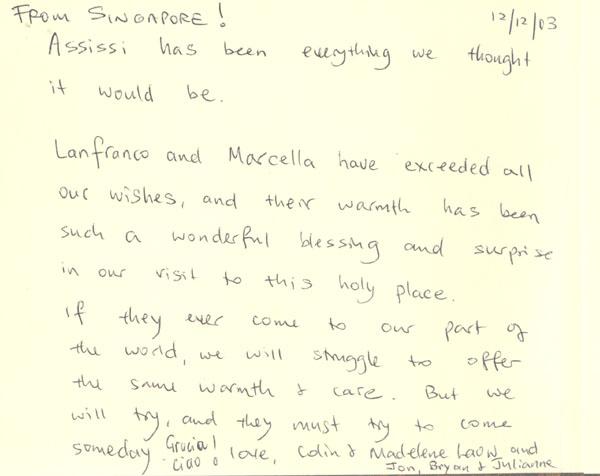 FROM SINGAPORE! 12/12/03
Assissi has been everything we thought
it would be.
Lanfranco and Marcella have exceeded all
our wishes, and their warmth has been
such a wonderful blessing and surprise
in our visit to this holy place.
If they ever come to our part of
the world, we will struggle to offer
the same warmth & care. But we
will try, and they must try to come
someday Gracia! love, Colin & Madelene Laow and
Ciao! Jon, Bryan & Julianne